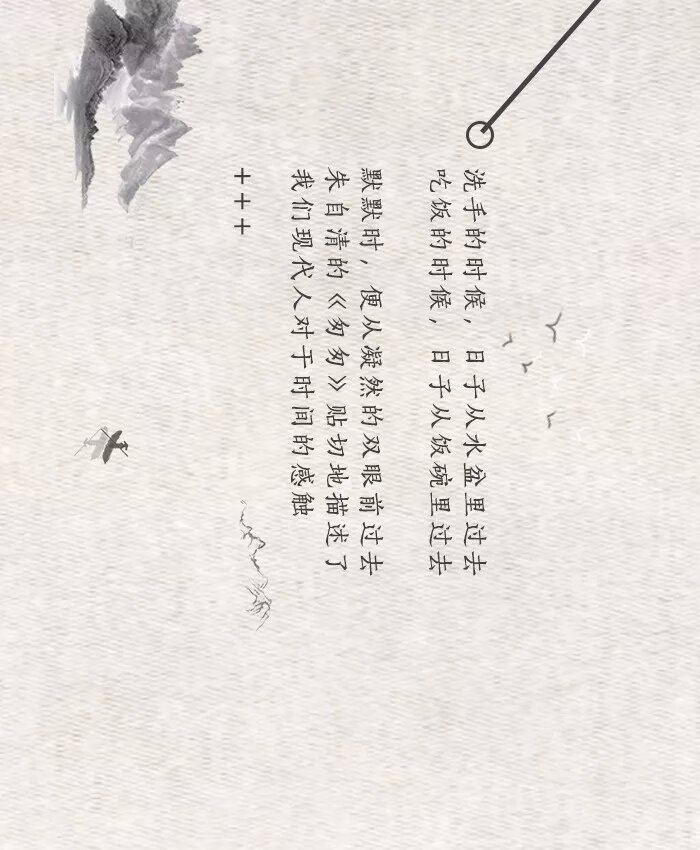 洗手的时候，日子从水盆里过去
吃饭的时候，日子从饭碗里过去
默默时，便从凝然的双眼前过去
朱自清的《匆匆》贴切地描述了
我们现代人对于时间的感触
+++